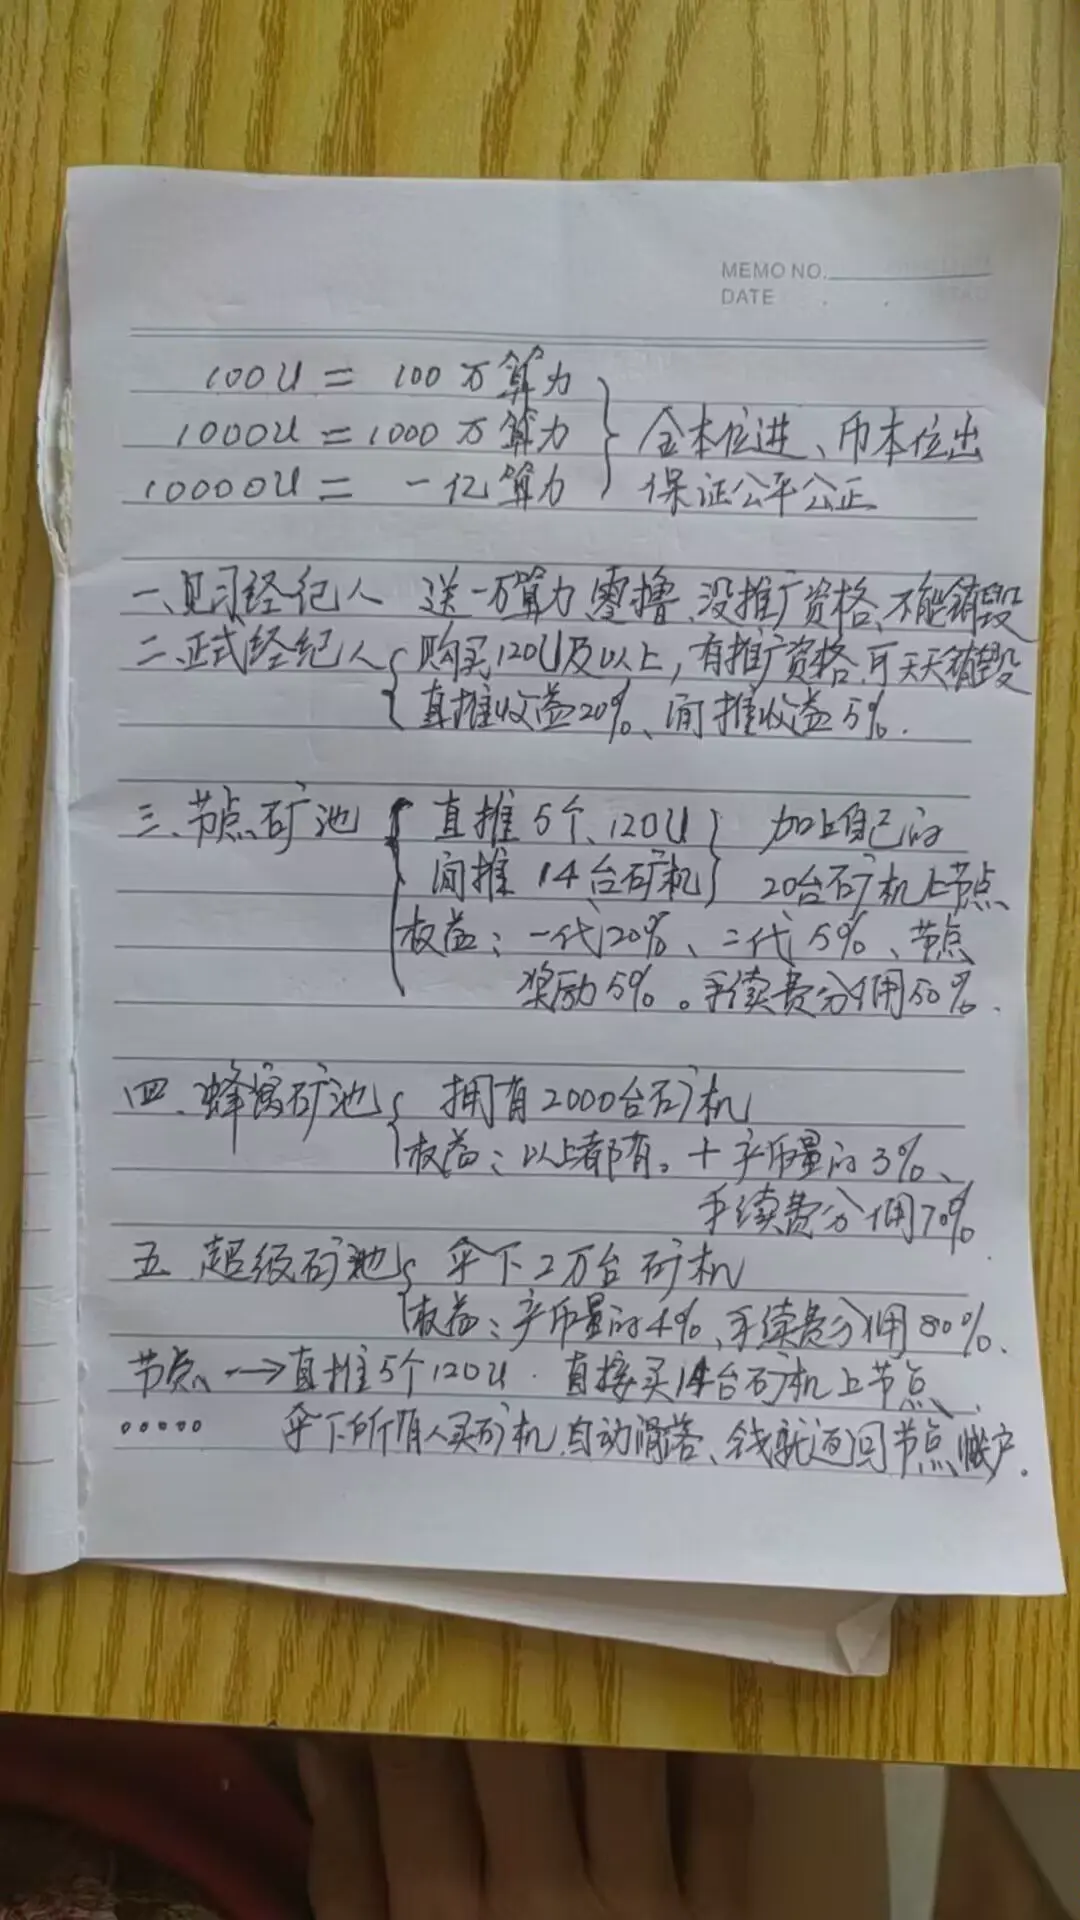 MEMO NO.
DATE
100U = 100万算力
1000U = 1000万算力
10000U = 一亿算力
金本位进、币本位出
保证公平公正
一、见习经纪人 送一万算力 零撸、没推广资格、不能销毁
二、正式经纪人 购买120U及以上,有推广资格、可天天销毁
直推收益20%、间推收益5%.
三、节点矿池 直推5个、120U 加上自己的
间推14台矿机 20台矿机上节点
权益:一代20%、二代5%、节点
奖励5%。手续费分佣50%.
四、蜂窝矿池 拥有2000台矿机
权益:以上都有。+产币量的3%、
手续费分佣70%
五 超级矿池 伞下2万台矿机
权益:产币量的4%、手续费分佣80%.
节点 → 直推5个120U. 直接买14台矿机上节点
伞下所有人买矿机,自动滑落、钱就返回节点账户.